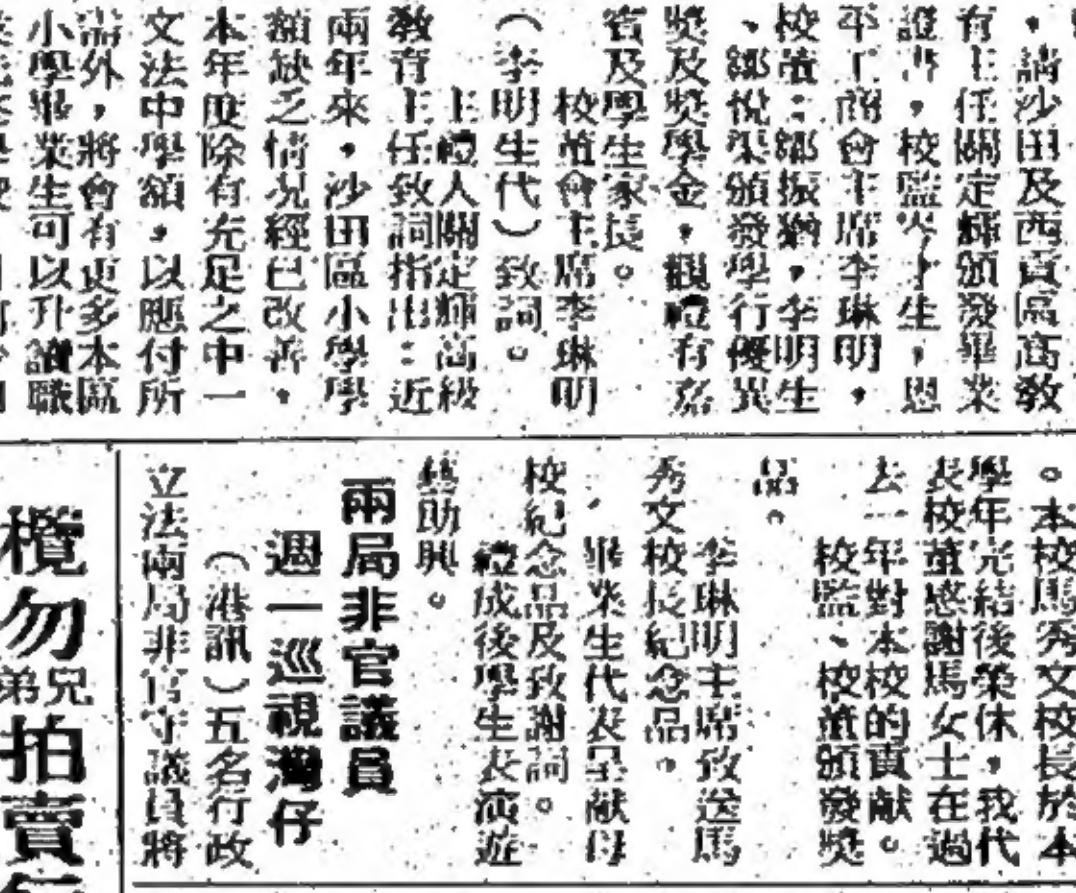 ，請沙田及西貢區高教
有主任關定輝頒發畢業
證書，校監 生，恩
平工商會主席李琳明，
校董：鄒振猷，李明生
、鄒悅渠頒發學行優異
獎及獎學金，觀禮有嘉
賓及學生家長。
校董會主席李琳明
（李明生代）致詞。
主禮人關定輝高級
教育主任致詞指出：近
兩年來，沙田區小學學
額缺乏情況經已改善，
本年度除有充足之中一
文法中學額，以應付所
需外，將會有更多本區
小學畢業生可以升讀職
。本校馬秀文校長於本
學年完結後榮休，我代
表校董感謝馬女士在過
去一年對本校的貢献。
校監、校董頒發獎
品。
李琳明主席致送馬
秀文校長紀念品。
畢業生代表呈献母
校紀念品及致謝詞。
禮成後學生表演遊
藝助興。
兩局非官議員
週一巡視灣仔
（港訊）五名行政
立法兩局非官守議員將
欖勿兄弟拍賣